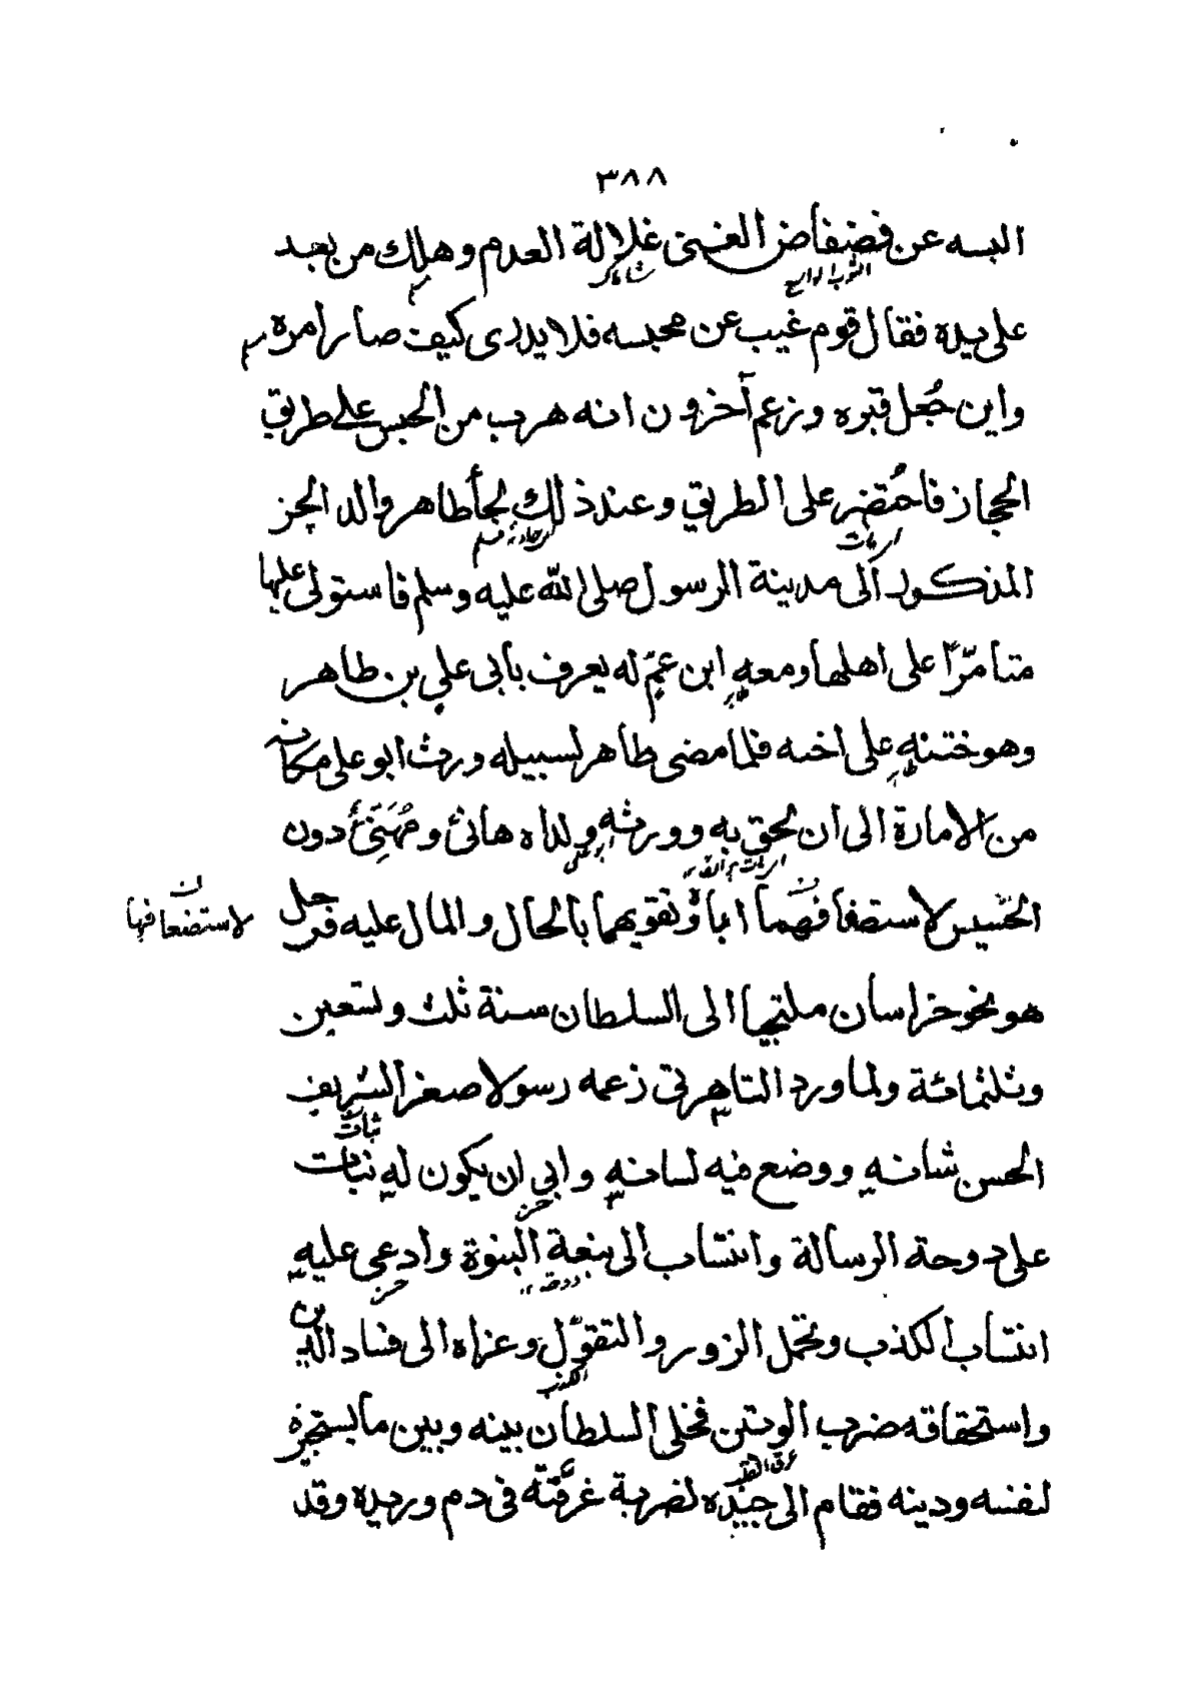 ٣٨٨
البسه عن فضفاض الغنى غلالة العدم وهلك من بعد
الثوب الواسع
على يده فقال قوم غيب عن محبسه فلا يدرى كيف صار امره
واين جُعل قبره وزعم آخرون انه هرب من الحبس على طريق
الحجاز فاحتُضر على الطريق وعند ذلك لجأ طاهر والد الحز
المذكور الى مدينة الرسول صلى الله عليه وسلم فاستولى عليها
متأمّرًا على اهلها ومعه ابن عمّ له يعرف بابى على بن طاهر
وهو ختنه على اخته فلما مضى طاهر لسبيله ورث ابو على مكانه
من الامارة الى ان لحق به وورثه ولداه هانئ ومُهَنَّئ دون
الحسين لاستضعافهما اباه وتقويهما بالحال والمال عليه فرحل
لاستضعافها
هو نحو خراسان ملتجيا الى السلطان سنة ثلث وتسعين
وثلثمائة ولما ورد التاهرتى زعمه رسولا صغر الشريف
الحسن شانه ووضع فيه لسانه وابى ان يكون له نبات
ثبات
على دوحة الرسالة وانتساب الى نبعة النبوة وادعى عليه
دوحة
انتساب الكذب وتحمل الزور والتقوّل وعزاه الى فساد الدين
الكذب
واستحقاقه ضرب الوتين فخلى السلطان بينه وبين ما يستجيزه
لنفسه ودينه فقام الى جيده لضربة غرّقته فى دم وريده وقد